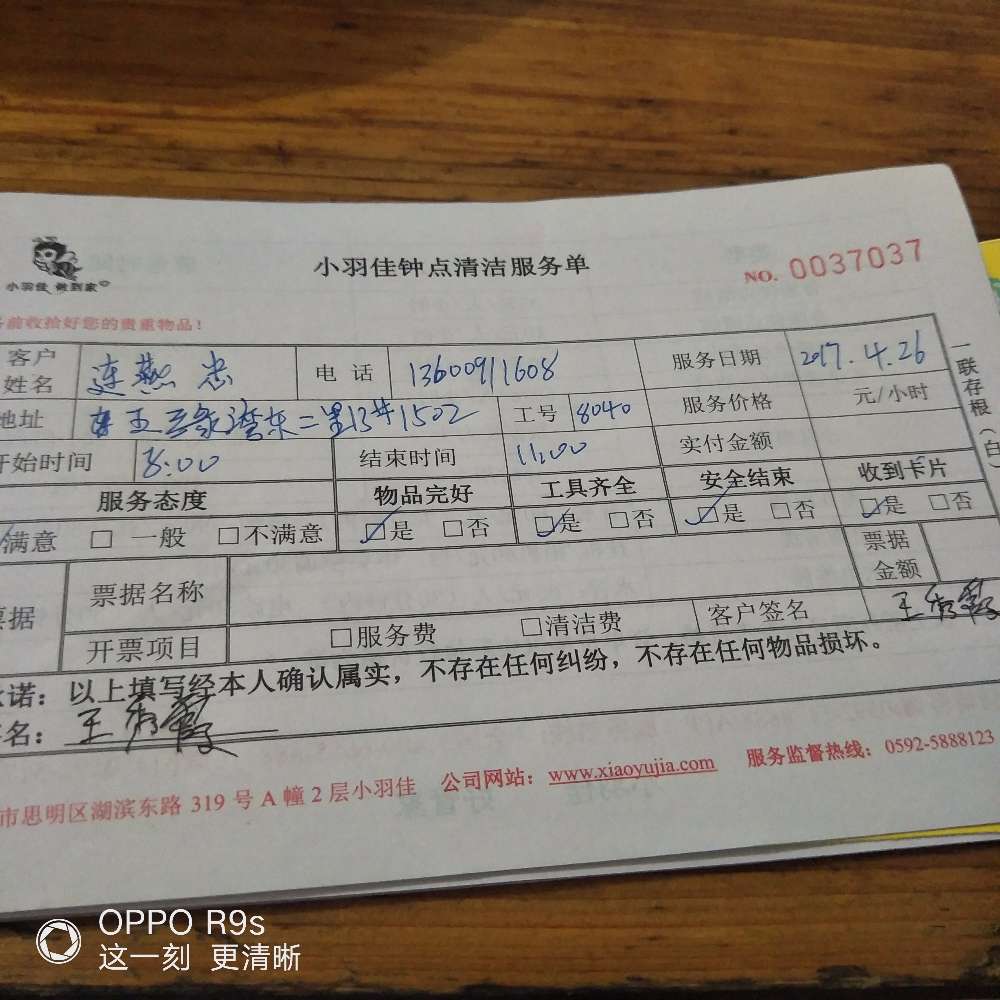 小羽佳 做到家
小羽佳钟点清洁服务单
NO. 0037037
前收拾好您的贵重物品!
客户姓名 连燕忠 电话 13600911608 服务日期 2017.4.26
地址 二里13#1502 工号 8040 服务价格 元/小时
开始时间 8:00 结束时间 11:00 实付金额
服务态度 物品完好 工具齐全 安全结束 收到卡片
满意 □ 一般 □不满意 ☑是 □否 ☑是 □否 ☑是 □否 ☑是 □否
票据 票据名称 票据金额
开票项目 □服务费 □清洁费 客户签名 王秀霞
承诺:以上填写经本人确认属实,不存在任何纠纷,不存在任何物品损坏。
签名: 王秀霞
市思明区湖滨东路 319 号 A 幢 2 层小羽佳 公司网站:www.xiaoyujia.com 服务监督热线:0592-5888123
一联存根(白)
OPPO R9s
这一刻 更清晰